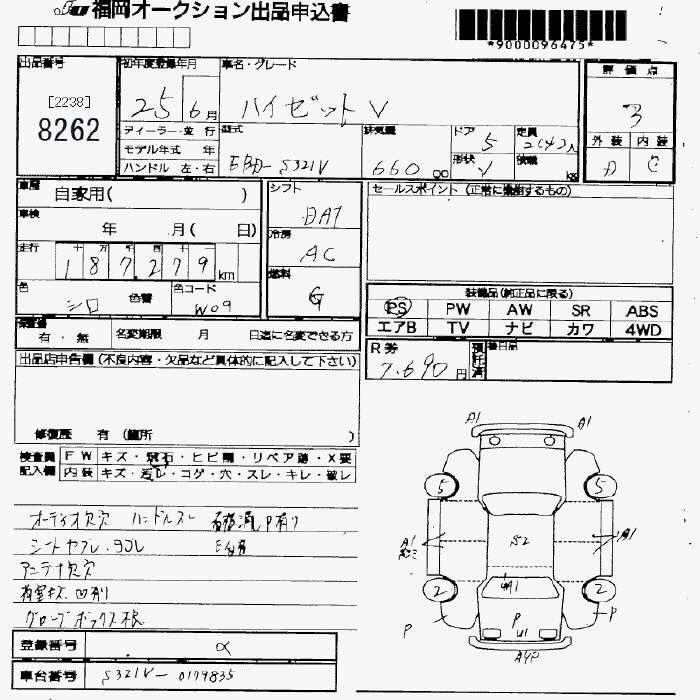 福岡オークション出品申込書
*9000096475*
出品番号
[2238]
8262
初年度登録年月
25 6月
車名・グレード
ハイゼット V
評価点
3
外装 内装
D C
ディーラー・並行
モデル年式 年
ハンドル 左・右
型式
EBD- S321V
排気量
660 cc
ドア
5
形状
V
定員
2(4)人
積載
kg
車歴
自家用( )
車検
年 月( 日)
走行
十 万 千 百 十
187,279 km
色
シロ
色替
色コード
W09
シフト
DAT
冷房
AC
燃料
G
セールスポイント (正常に機能するもの)
装備品(純正品に限る)
PS PW AW SR ABS
エアB TV ナビ カワ 4WD
保証書
有・無
名変期限 月 日迄に名変できる方
R券
7,690円
預託済
出品店申告欄 (不良内容・欠品など具体的に記入して下さい)
修復歴 有 (箇所 )
検査員記入欄
FW キズ・飛石・ヒビ割・リペア跡・X要
内装 キズ・汚レ・コゲ・穴・スレ・キレ・破レ
オーディオ欠穴 ハンドルスレ
シートヤブレ・ヨゴレ
アンテナ欠穴
グローブボックス
登録番号
車台番号 S321V-0179835
A1 A1
5 5
A1 S2 A1
2 2
P P
P
U1